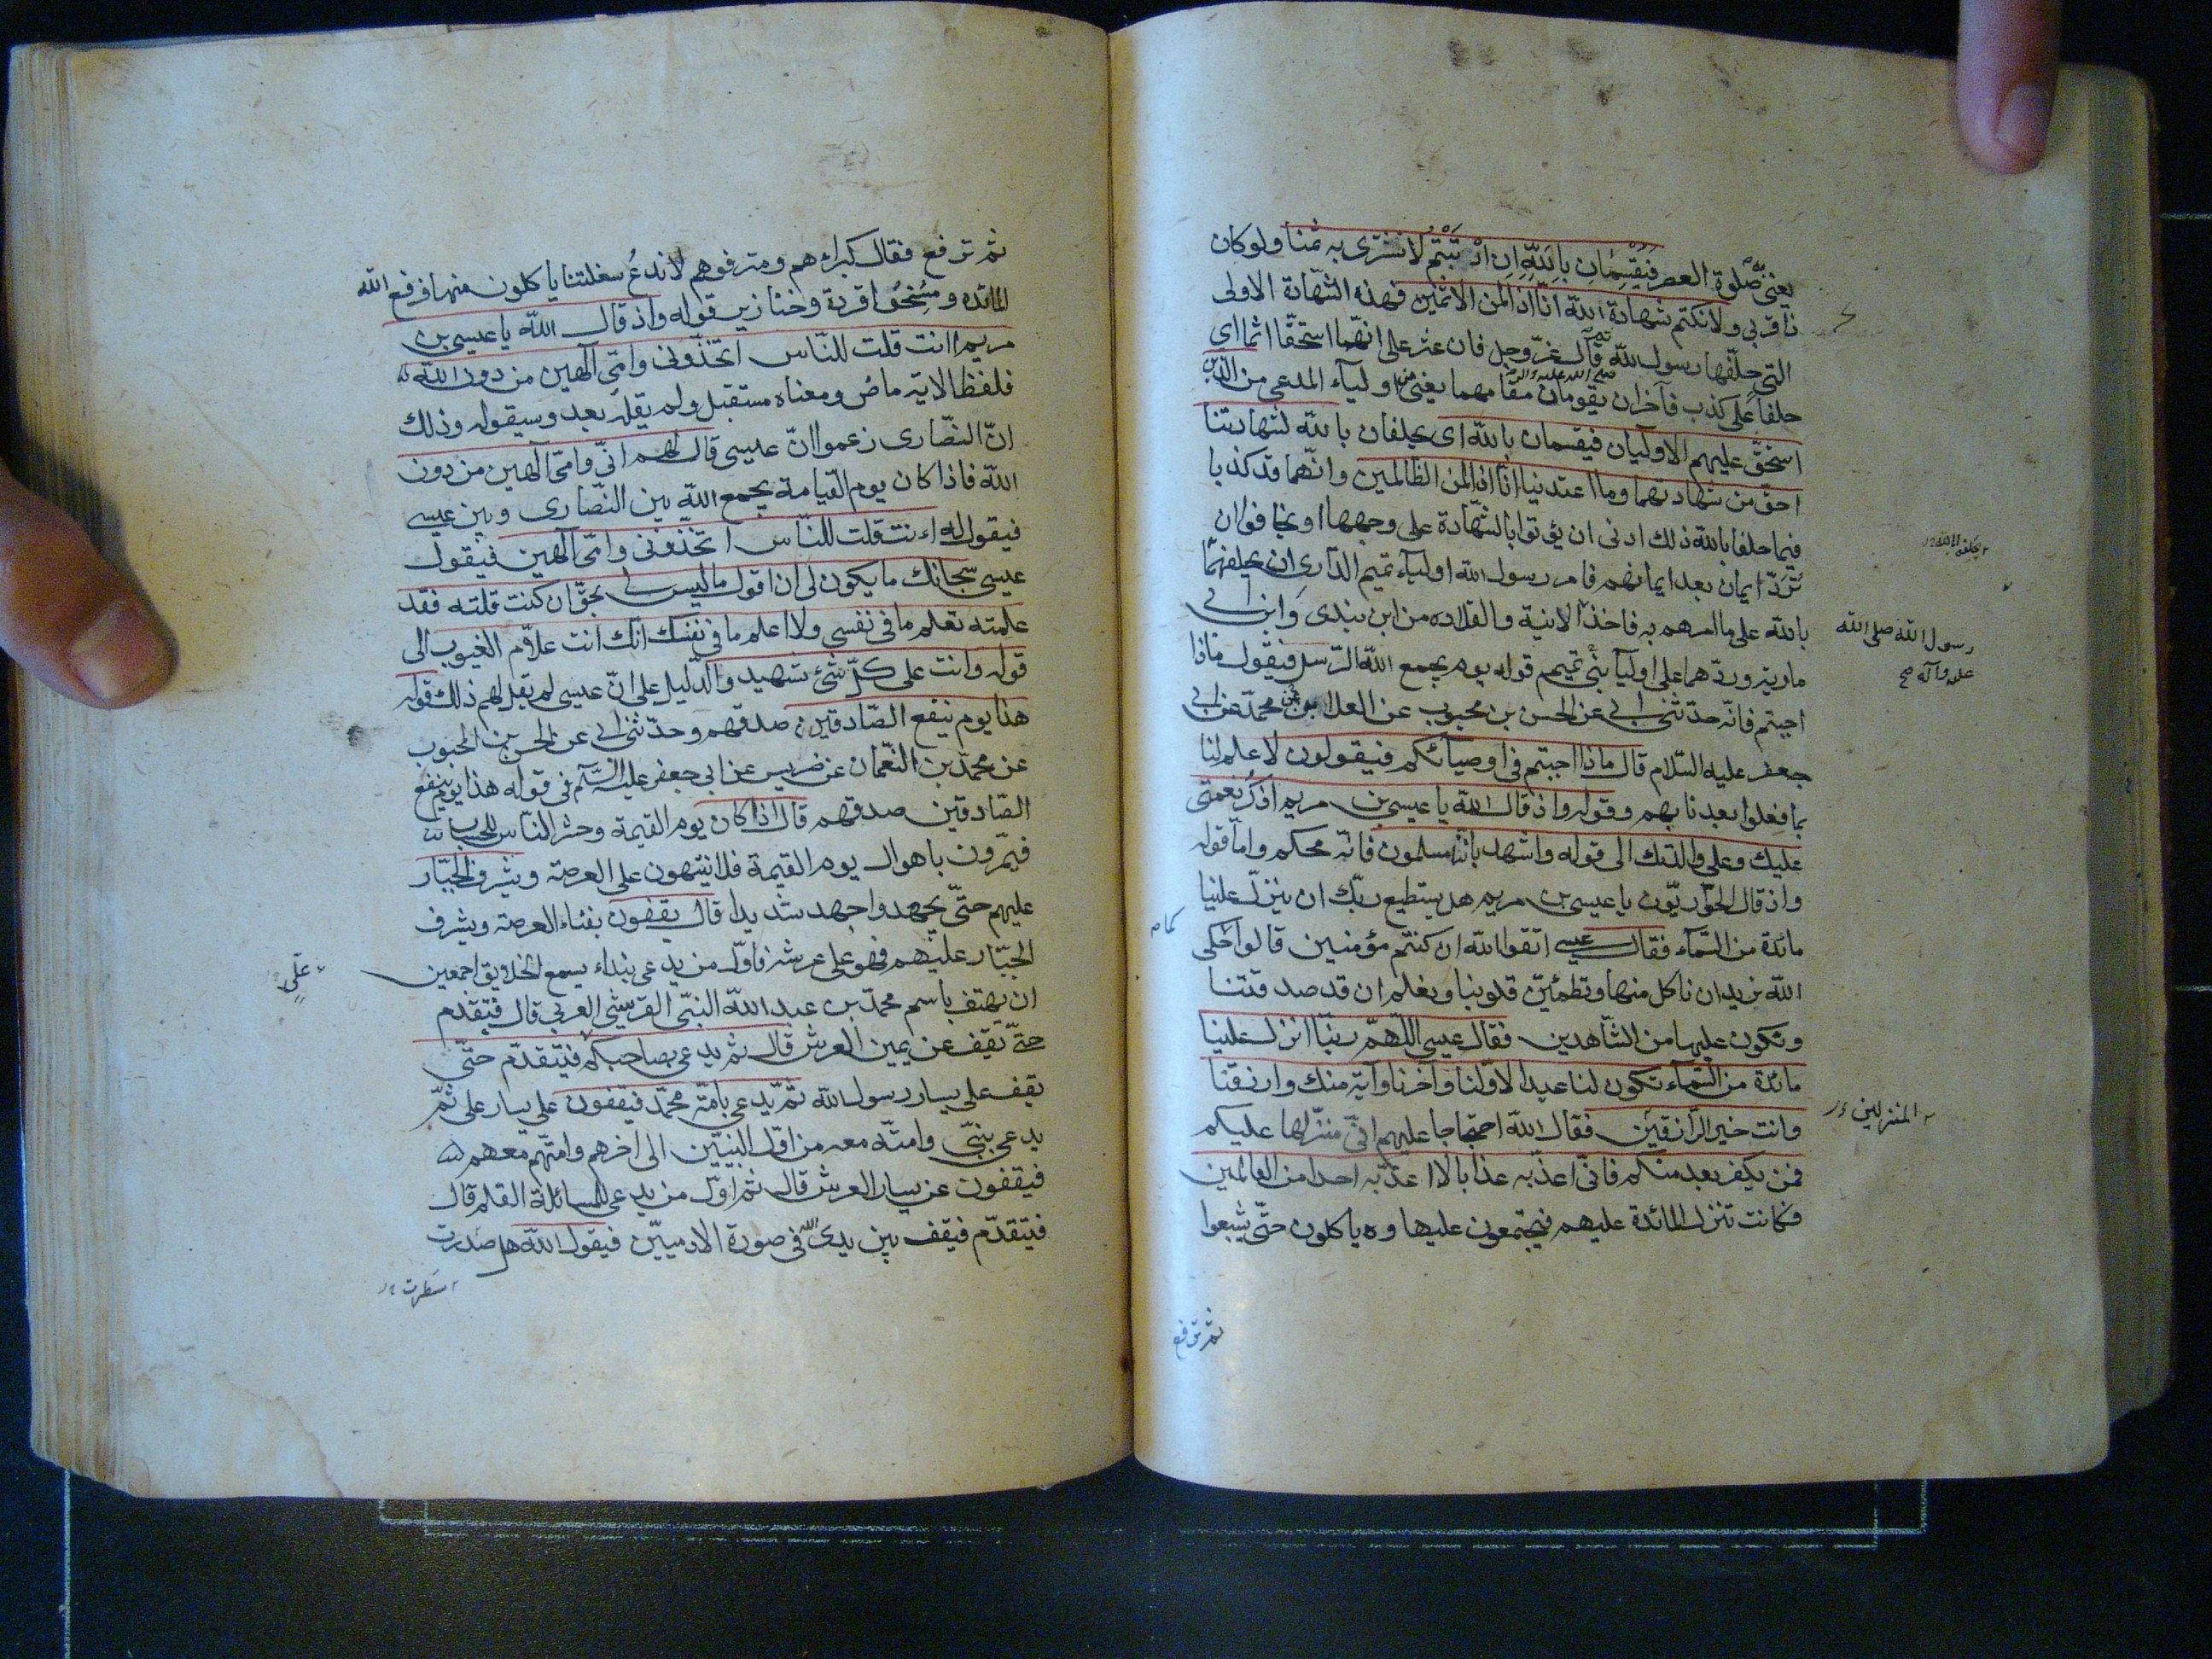 يعنى صلوة العصر فَيُقْسِمَانِ بِاللّهِ اِن ارْتَبْتُمْ لَا نَشْتَرى به ثمنا ولو كان
ذا قربى ولا نكتم شهادة الله انّا اذا لمن الاثمين فهذه الشهادة الاولى
التى حلّفها رسول الله قال عزّ وجل فان عثر على انهما استحقّا اثما اى
صلى الله عليه وآله
حلفا على كذب فآخران يقومان مقامهما يعنى من اوليآء المدعى من الذين
استحقّ عليهم الاوليان فيقسمان بالله اى يحلفان بالله لشهادتنا
احقّ من شهادتهما وما اعتدينا انّا اذا لمن الظالمين وانّهما قد كذبا
فيما حلفا بالله ذلك ادنى ان يؤتوا بالشهادة على وجهها او يخافوا ان
تُرَدّ ايمان بعد ايمانهم فامر رسول الله اوليآء تميم الدّارى ان يحلفهما
بالله على ما امرهم به فاخذ الانية والقلاده من ابن بندى وابن ابى
رسول الله صلى الله
عليه وآله صح
مارية وردّهما على اوليآ بنى تميم قوله يوم يجمع الله الرّسل فيقول ماذا
اجبتم فانّه حدّثنى ابى عن الحسن بن محبوب عن العلا عن محمّد عن ابى
جعفر عليه السّلام قال ماذا اجبتم فى اوصيآئكم فيقولون لا علم لنا
بما فعلوا بعدنا بهم وقوله واذ قال الله يا عيسى بن مريم اذكر نعمتى
عليك وعلى والدتك الى قوله واشهد باننا مسلمون فانّه محكم وامّا قوله
واذ قال الحوّاريّون يا عيسى بن مريم هل يستطيع ربّك ان ينزّل علينا
مائدة من السّمآء فقال عيسى اتقوا الله ان كنتم مؤمنين قالوا حكى
الله نريد ان ناكل منها وتطمئنّ قلوبنا ونعلم ان قد صدقتنا
ونكون عليها من الشّاهدين فقال عيسى اللّهمّ ربّنا انزل علينا
مائدة من السّماء تكون لنا عيدا لاوّلنا وآخرنا وآية منك وارزقنا
وانت خير الرّازقين فقال الله احتجاجا عليهم انّى منزّلها عليكم
المنزلين
فمن يكفر بعد منكم فانّى اعذّبه عذابا لا اعذّبه احدا من العالمين
فكانت تنزل المائدة عليهم فيجتمعون عليها وه ياكلون حتّى يشبعوا
ثم ترفع
ثم ترفع فقال كبراءهم ومترفوهم لا ندعُ سفلتنا ياكلون منها فرفع الله
المائده ومُسِخُوا قردة وخنازير قوله واذ قال الله يا عيسى بن
مريم اانت قلت للنّاس اتّخذونى وامّى آلهين من دون الله
فلفظ الاية ماض ومعناه مستقبل ولم يقله بعد وسيقوله وذلك
انّ النصّارى زعموا انّ عيسى قال لهم انّى وامّى آلهين من دون
الله فاذا كان يوم القيامة يجمع الله بين النّصارى وبين عيسى
فيقول له ءانت قلت للنّاس اتّخذونى وامّى آلهين فيقول
عيسى سبحانك ما يكون لى ان اقول ما ليس لى بحقّ ان كنت قلته فقد
علمته تعلم ما فى نفسى ولا اعلم ما فى نفسك انّك انت علاّم الغيوب الى
قوله وانت على كلّ شئ شهيد والدّليل على انّ عيسى لم يقل لهم ذلك قوله
هذا يوم ينفع الصّادقين صدقهم وحدّثنى ابى عن الحسن بن المحبوب
عن محمّد بن النّعمان عن ضريس عن ابى جعفر عليه السّلم فى قوله هذا يوم ينفع
الصّادقين صدقهم قال اذا كان يوم القيمة وحشر النّاس للحساب
فيمّرون باهوال يوم القيمة فلا ينتهون على العرصة ويشرف الجبّار
عليهم حتّى يجهدوا جهد شديدا قال يقفون بفناء العرصة ويشرف
الجبّار عليهم فهو على عرشه فاوّل من يدعى بنداء يسمع الخلايق اجمعين
ان يهتف باسم محمّد بن عبد الله النّبى القرشىّ العربى قال فيتقدّم
حتّى يقف عن يمين العرش قال ثم يدعى بصاحبكم فيتقدّم حتّى
على
يقف على يسار رسول الله ثمّ يدعى بامّة محمّد فيقفون على يسار على ثمّ
يدعى بنبىّ وامته معه من اوّل النبيّين الى اخرهم وامّتهم معهم
فيقفون عن يسار العرش قال ثم اوّل من يدعى للمسائلة القلم قال
فيتقدّم فيقف بين يدى الله فى صورة الادميّين فيقول الله هل صدرت
سطرت